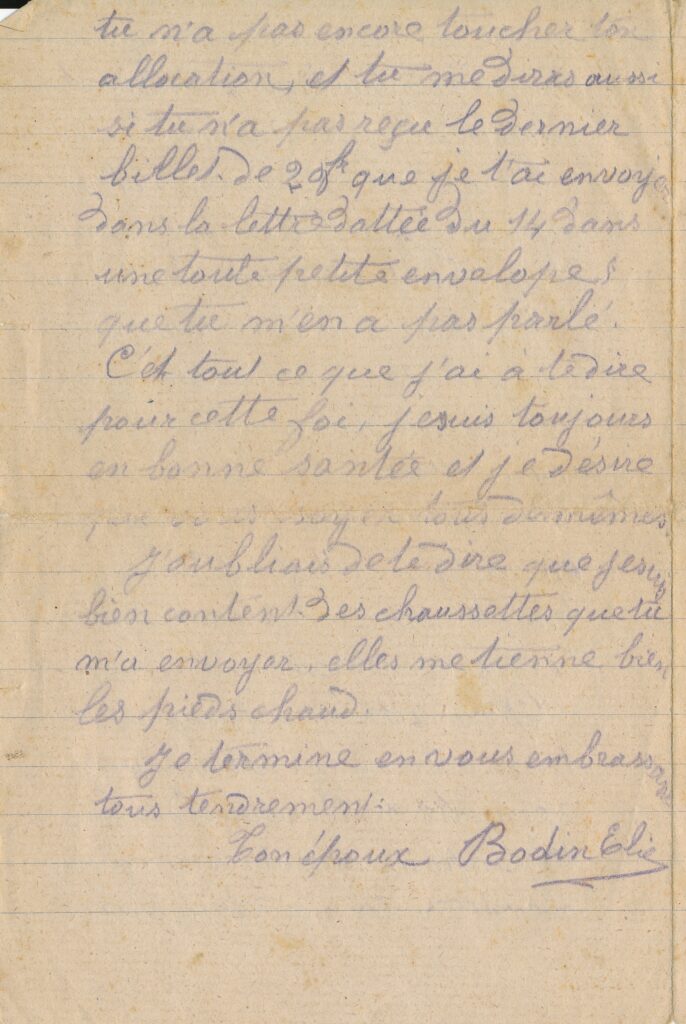 tu n'a pas encore toucher ton
allocation, et tu me diras aussi
si tu n'a pas reçu le dernier
billet de 20fr que je t'ai envoyer
dans la lettre dattée du 14 dans
une toute petite envalope
que tu m'en a pas parlé.
C'ét tout ce que j'ai à te dire
pour cette foi, je suis toujours
en bonne santée et je désire
que vous soyer tous de mêmes.
J'oubliais de te dire que je suis
bien content des chaussettes que tu
m'a envoyer, elles me tienne bien
les pieds chaud.
Je termine en vous embrassant
tous tendrement:
Ton époux Bodin Elie